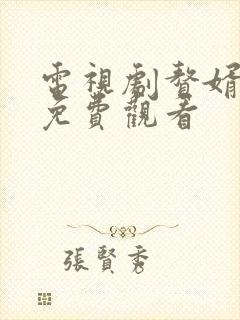 電視劇贅婿
免費觀看
張賢秀